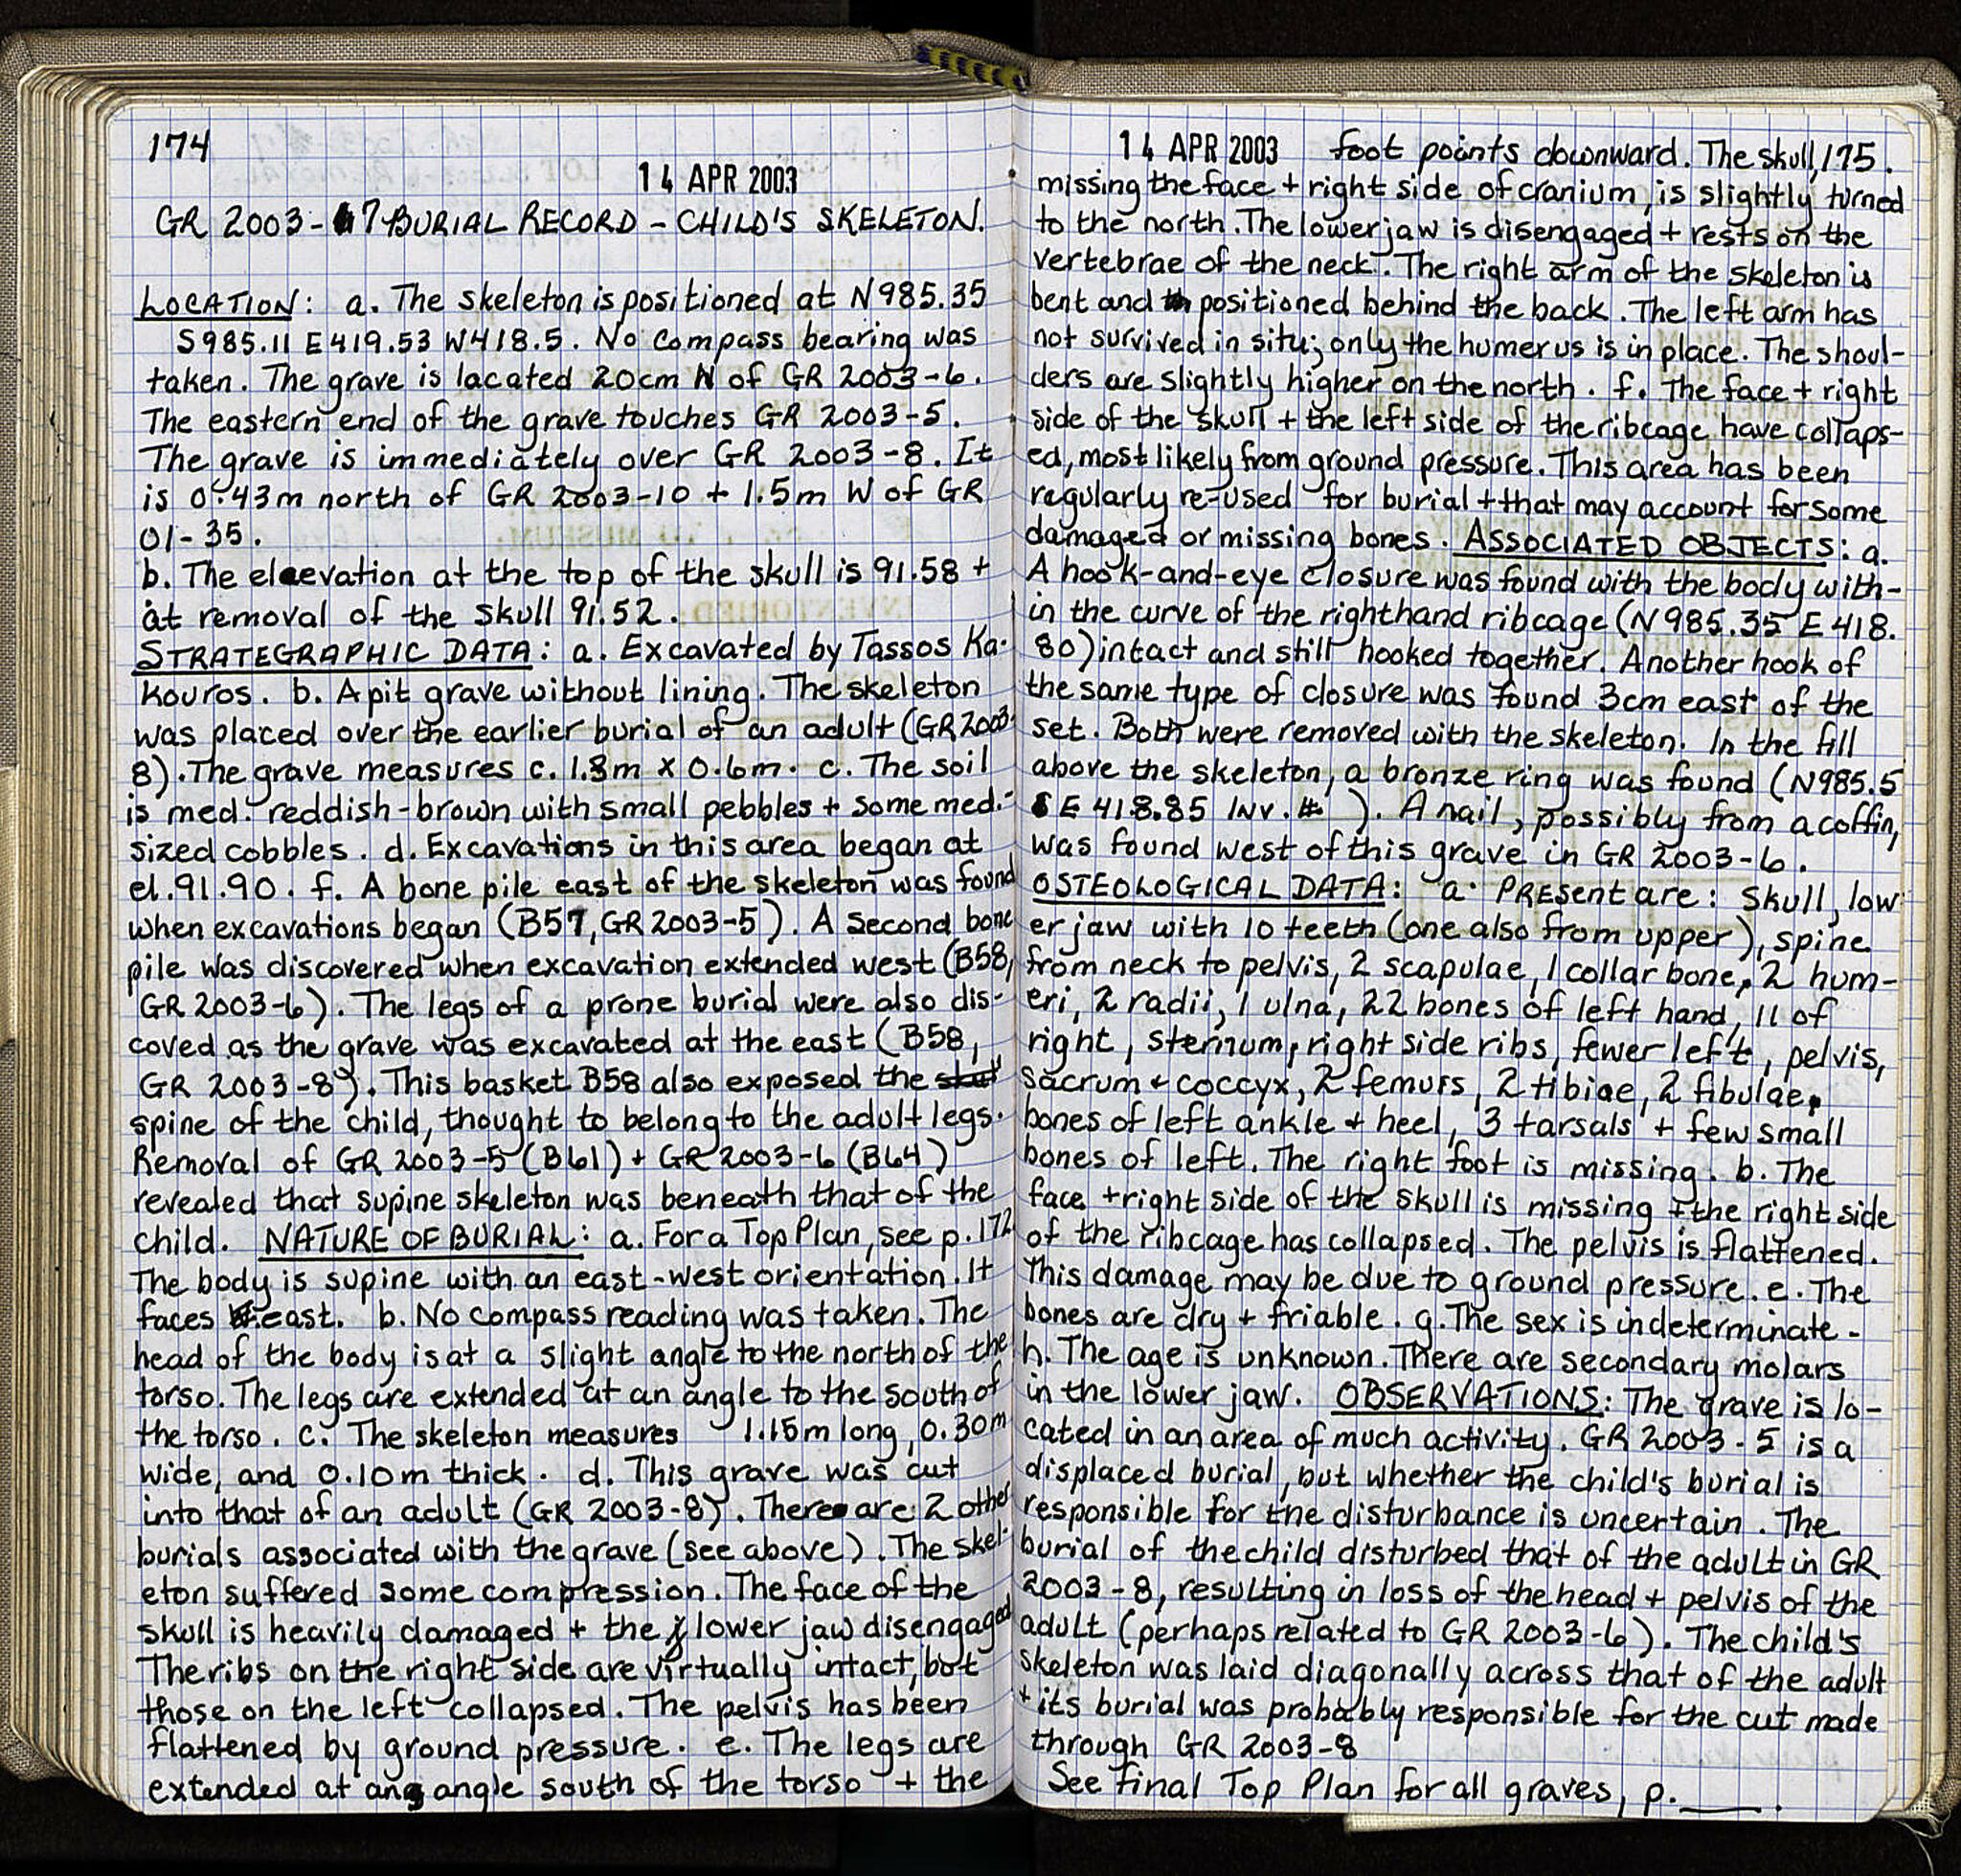 174
14 APR 2003
GR 2003-7 BURIAL RECORD - CHILD'S SKELETON.
LOCATION: a. The skeleton is positioned at N985.35
S985.11 E419.53 W418.5. No compass bearing was
taken. The grave is lacated 20cm W of GR 2003-6.
The eastern end of the grave touches GR 2003-5.
The grave is immediately over GR 2003-8. It
is 0.43m north of GR 2003-10 + 1.5m W of GR
01-35.
b. The eleevation at the top of the skull is 91.58 +
at removal of the skull 91.52.
STRATEGRAPHIC DATA: a. Excavated by Tassos Ka-
kouros. b. A pit grave without lining. The skeleton
was placed over the earlier burial of an adult (GR 2003-
8). The grave measures c. 1.3m x 0.6m. c. The soil
is med. reddish-brown with small pebbles + some med.-
sized cobbles. d. Excavations in this area began at
el. 91.90. f. A bone pile east of the skeleton was found
when excavations began (B57, GR 2003-5). A second bone
pile was discovered when excavation extended west (B58,
GR 2003-6). The legs of a prone burial were also dis-
coved as the grave was excavated at the east (B58,
GR 2003-8). This basket B58 also exposed the
spine of the child, thought to belong to the adult legs.
Removal of GR 2003-5 (B61) + GR 2003-6 (B64)
revealed that supine skeleton was beneath that of the
child. NATURE OF BURIAL: a. For a Top Plan, see p. 172
The body is supine with an east-west orientation. It
faces east. b. No compass reading was taken. The
head of the body is at a slight angle to the north of the
torso. The legs are extended at an angle to the south of
the torso. c. The skeleton measures 1.15m long, 0.30m
wide, and 0.10m thick. d. This grave was cut
into that of an adult (GR 2003-8). There are 2 other
burials associated with the grave (see above). The skel-
eton suffered some compression. The face of the
skull is heavily damaged + the lower jaw disengaged
The ribs on the right side are virtually intact, but
those on the left collapsed. The pelvis has been
flattened by ground pressure. e. The legs are
extended at ang angle south of the torso + the
14 APR 2003 foot points downward. The skull, 175.
missing the face + right side of cranium, is slightly turned
to the north. The lower jaw is disengaged + rests on the
vertebrae of the neck. The right arm of the skeleton is
bent and positioned behind the back. The left arm has
not survived in situ; only the humerus is in place. The shoul-
ders are slightly higher on the north. f. The face + right
side of the skull + the left side of the ribcage have collaps-
ed, most likely from ground pressure. This area has been
regularly re-used for burial + that may account for some
damaged or missing bones. ASSOCIATED OBJECTS: a.
A hook-and-eye closure was found with the body with-
in the curve of the righthand ribcage (N985.35 E418.
80) intact and still hooked together. Another hook of
the same type of closure was found 3cm east of the
set. Both were removed with the skeleton. In the fill
above the skeleton, a bronze ring was found (N985.5
E 418.85 Inv. # ). A nail, possibly from a coffin,
was found west of this grave in GR 2003-6.
OSTEOLOGICAL DATA: a. PRESent are: Skull, low
er jaw with 10 teeth (one also from upper), spine
from neck to pelvis, 2 scapulae, 1 collar bone, 2 hum-
eri, 2 radii, 1 ulna, 22 bones of left hand, 11 of
right, sternum, right side ribs, fewer left, pelvis,
sacrum + coccyx, 2 femurs, 2 tibiae, 2 fibulae,
bones of left ankle + heel, 3 tarsals + few small
bones of left. The right foot is missing. b. The
face + right side of the skull is missing + the right side
of the ribcage has collapsed. The pelvis is flattened.
This damage may be due to ground pressure. e. The
bones are dry + friable. g. The sex is indeterminate.
h. The age is unknown. There are secondary molars
in the lower jaw. OBSERVATIONS: The grave is lo-
cated in an area of much activity. GR 2003-5 is a
displaced burial, but whether the child's burial is
responsible for the disturbance is uncertain. The
burial of the child disturbed that of the adult in GR
2003-8, resulting in loss of the head + pelvis of the
adult (perhaps related to GR 2003-6). The child's
skeleton was laid diagonally across that of the adult
+ its burial was probably responsible for the cut made
through GR 2003-8
See final Top Plan for all graves, p. ___.